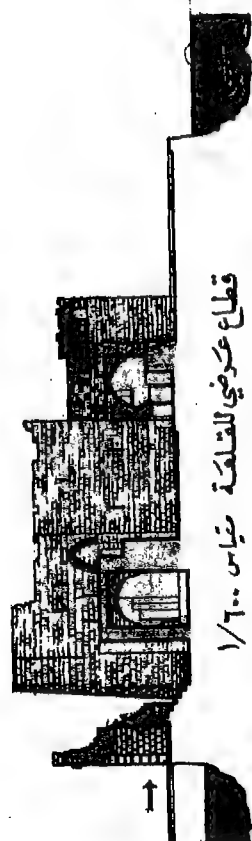 قطاع عرضي للقلعة مقياس ١/٦٠٠